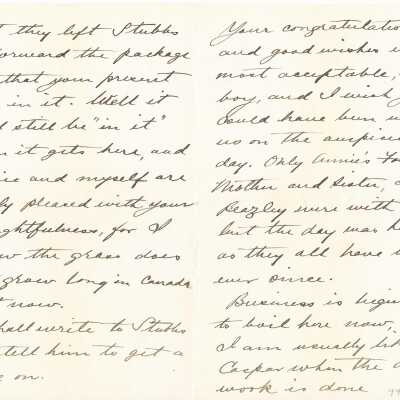 t they left Stubbs
forward the package
that your present
in it. Well it
d still be "in it"
n it gets here, and
ie and myself are
ly pleased with your
ghtfulness, for I
w the grass does
grow long in Canada
t now.
hall write to Stubbs
tell him to get a
e on.
Your congratulatio
and good wishes w
most acceptable,
boy, and I wish y
could have been w
us on the auspicio
day. Only Annie's Fa
Mother and Sister, a
Peazley were with
but the day was h
as they all have
ever since.
Business is begin
to boil here now,
I am usually lik
Caspar when the d
work is done